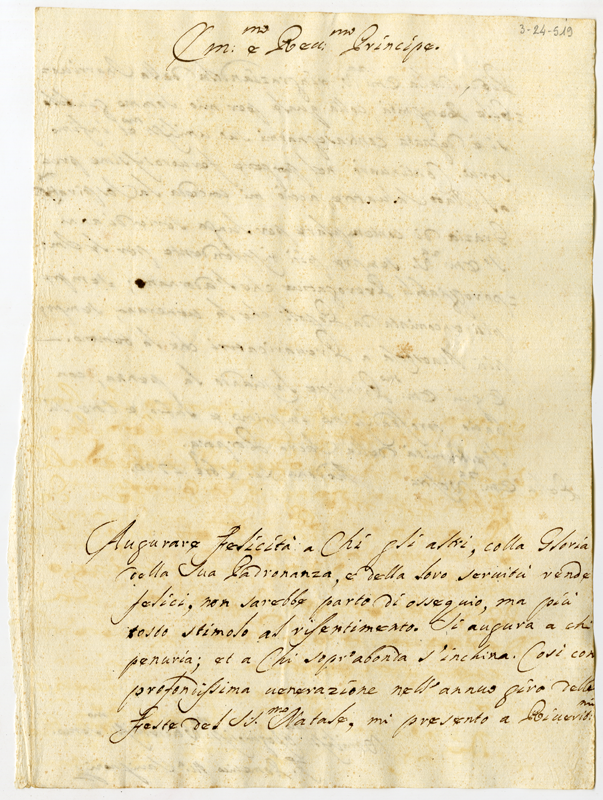 3-24-519
Em:mo e Reu:mo Principe.
Augurare felicità a Chi gli altri, colla Gloria
della Sua Padronanza, e della loro seruitù rende
felici, non sarebbe parto di ossequio, ma più
tosto stimolo al risentimento. Si augura a chi
penuria; et a Chi sopr'abonda s'inchina. Così con
profondissima uenerazione nell'annuo giro delle
feste del SS.mo Natale, mi presento a